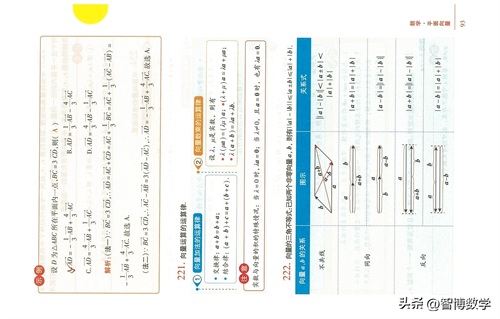 数学·平面向量
93
示例
设 D 为△ABC 所在平面内一点, BC=3CD, 则( A )
A. AD=-1/3 AB+4/3 AC
B. AD=1/3 AB-4/3 AC
C. AD=4/3 AB+1/3 AC
D. AD=4/3 AB-1/3 AC
解析:(法一)∵BC=3CD,∴AD=AC+CD=AC+1/3 BC=AC+1/3(AC-AB)=
-1/3 AB+4/3 AC. 故选 A.
(法二)∵BC=3CD,∴AC-AB=3(AD-AC),∴AD=-1/3 AB+4/3 AC. 故选 A.
221. 向量运算的运算律.
① 向量加法的运算律
• 交换律: a+b=b+a;
• 结合律: (a+b)+c=a+(b+c).
② 向量数乘的运算律
设 λ, μ是实数, 则有
• λ(μa)=(λμ)a; •(λ+μ)a=λa+μa;
• λ(a+b)=λa+λb.
注意
实数与向量的积的特殊情况: 当 λ=0 时, λa=0; 当 λ≠0, 且 a=0 时, 也有 λa=0.
222. 向量的三角不等式: 已知两个非零向量 a, b, 则有||a|-|b||≤|a±b|≤|a|+|b|.
向量 a, b 的关系
图示
关系式
不共线
||a|-|b||<|a±b|<
|a|+|b|
同向
|a+b|=|a|+|b|
|a-b|=||a|-|b||
反向
|a+b|=||a|-|b||
|a-b|=|a|+|b|
头条 @智博数学